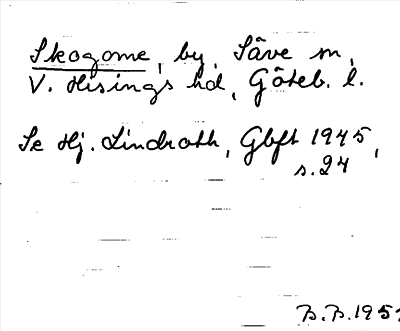 Skogome, by, Säve sn,
V. Hisings hd, Göteb. l.
Se Hj. Lindroth, Gbft 1945,
s. 24
B.B. 1951